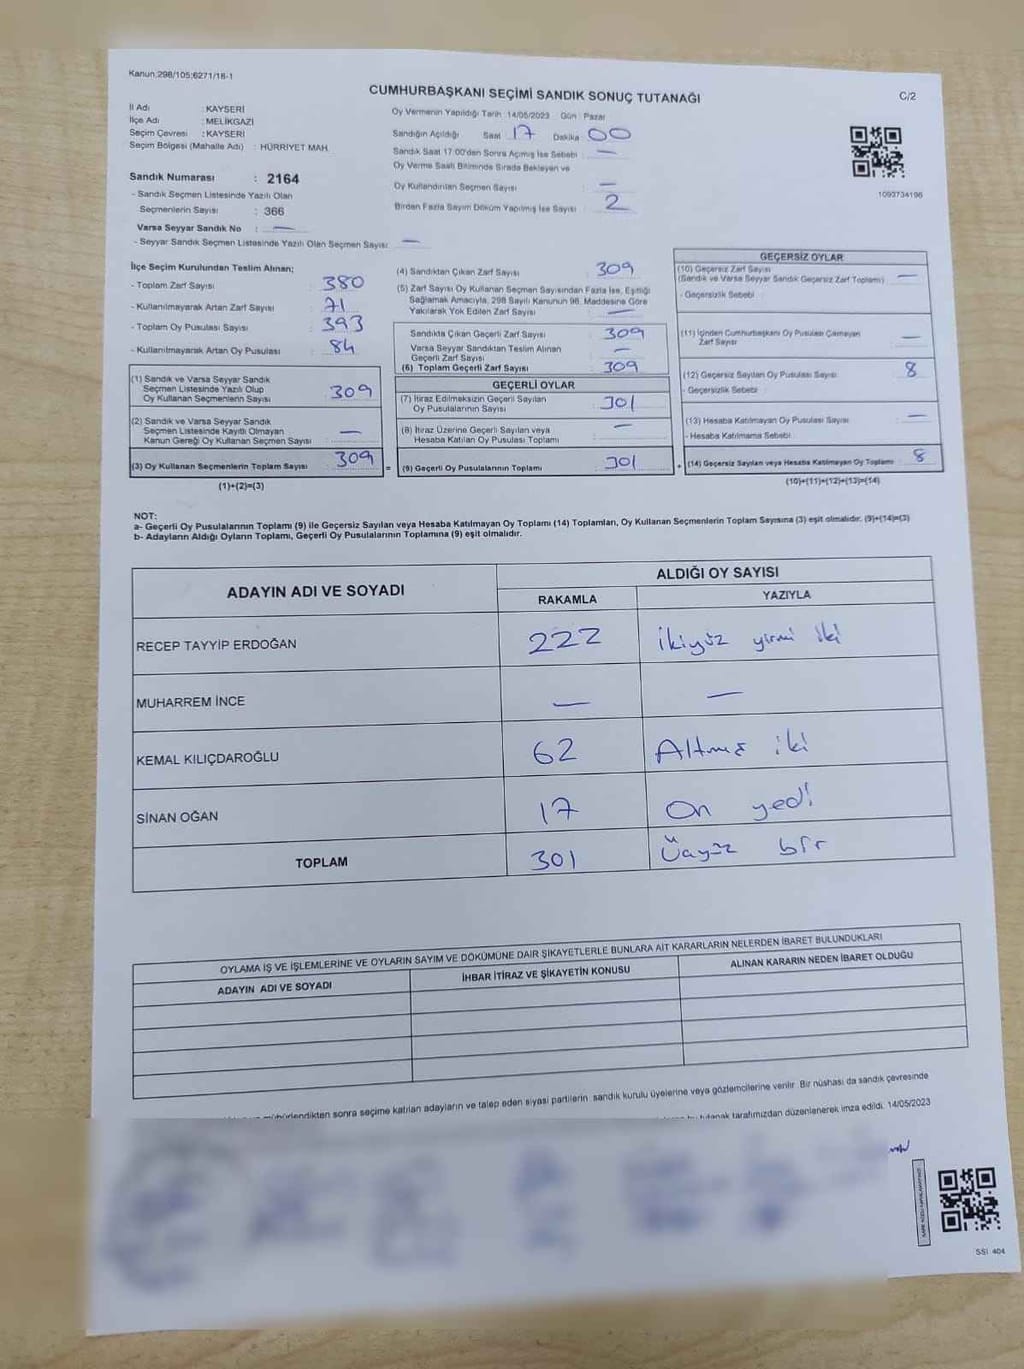 Kanun:298/105;6271/18-1
CUMHURBAŞKANI SEÇİMİ SANDIK SONUÇ TUTANAĞI
C/2
İl Adı : KAYSERİ
İlçe Adı : MELİKGAZİ
Seçim Çevresi : KAYSERİ
Seçim Bölgesi (Mahalle Adı) : HÜRRİYET MAH.
Sandık Numarası : 2164
- Sandık Seçmen Listesinde Yazılı Olan
Seçmenlerin Sayısı : 366
Varsa Seyyar Sandık No : —
- Seyyar Sandık Seçmen Listesinde Yazılı Olan Seçmen Sayısı: —
Oy Vermenin Yapıldığı Tarih 14/05/2023 Gün Pazar
Sandığın Açıldığı Saat 17 Dakika 00
Sandık Saat 17:00'den Sonra Açmış İse Sebebi : —
Oy Verme Saati Bitiminde Sırada Bekleyen ve
Oy Kullandırılan Seçmen Sayısı : —
Birden Fazla Sayım Döküm Yapılmış İse Sayısı : 2
1093734196
İlçe Seçim Kurulundan Teslim Alınan;
- Toplam Zarf Sayısı : 380
- Kullanılmayarak Artan Zarf Sayısı : 71
- Toplam Oy Pusulası Sayısı : 393
- Kullanılmayarak Artan Oy Pusulası : 84
(1) Sandık ve Varsa Seyyar Sandık
Seçmen Listesinde Yazılı Olup
Oy Kullanan Seçmenlerin Sayısı : 309
(2) Sandık ve Varsa Seyyar Sandık
Seçmen Listesinde Kayıtlı Olmayan
Kanun Gereği Oy Kullanan Seçmen Sayısı : —
(3) Oy Kullanan Seçmenlerin Toplam Sayısı : 309
(1)+(2)=(3)
(4) Sandıktan Çıkan Zarf Sayısı : 309
(5) Zarf Sayısı Oy Kullanan Seçmen Sayısından Fazla İse, Eşitliği
Sağlamak Amacıyla, 298 Sayılı Kanunun 98. Maddesine Göre
Yakılarak Yok Edilen Zarf Sayısı : —
Sandıkta Çıkan Geçerli Zarf Sayısı : 309
Varsa Seyyar Sandıktan Teslim Alınan
Geçerli Zarf Sayısı : —
(6) Toplam Geçerli Zarf Sayısı : 309
GEÇERLİ OYLAR
(7) İtiraz Edilmeksizin Geçerli Sayılan
Oy Pusulalarının Sayısı : 301
(8) İtiraz Üzerine Geçerli Sayılan veya
Hesaba Katılan Oy Pusulası Toplamı : —
= (9) Geçerli Oy Pusulalarının Toplamı : 301
GEÇERSİZ OYLAR
(10) Geçersiz Zarf Sayısı
(Sandık ve Varsa Seyyar Sandık Geçersiz Zarf Toplamı) : —
- Geçersizlik Sebebi :
(11) İçinden Cumhurbaşkanı Oy Pusulası Çıkmayan
Zarf Sayısı : —
(12) Geçersiz Sayılan Oy Pusulası Sayısı : 8
- Geçersizlik Sebebi :
(13) Hesaba Katılmayan Oy Pusulası Sayısı : —
- Hesaba Katılmama Sebebi :
+ (14) Geçersiz Sayılan veya Hesaba Katılmayan Oy Toplamı : 8
(10)+(11)+(12)+(13)=(14)
NOT:
a- Geçerli Oy Pusulalarının Toplamı (9) ile Geçersiz Sayılan veya Hesaba Katılmayan Oy Toplamı (14) Toplamları, Oy Kullanan Seçmenlerin Toplam Sayısına (3) eşit olmalıdır. (9)+(14)=(3)
b- Adayların Aldığı Oyların Toplamı, Geçerli Oy Pusulalarının Toplamına (9) eşit olmalıdır.
ADAYIN ADI VE SOYADI ALDIĞI OY SAYISI
RAKAMLA YAZIYLA
RECEP TAYYİP ERDOĞAN 222 İkiyüz yirmi iki
MUHARREM İNCE — —
KEMAL KILIÇDAROĞLU 62 Altmış iki
SİNAN OĞAN 17 On yedi
TOPLAM 301 Üçyüz bir
OYLAMA İŞ VE İŞLEMLERİNE VE OYLARIN SAYIM VE DÖKÜMÜNE DAİR ŞİKAYETLERLE BUNLARA AİT KARARLARIN NELERDEN İBARET BULUNDUKLARI
ADAYIN ADI VE SOYADI İHBAR İTİRAZ VE ŞİKAYETİN KONUSU ALINAN KARARIN NEDEN İBARET OLDUĞU
mühürlendikten sonra seçime katılan adayların ve talep eden siyasi partilerin sandık kurulu üyelerine veya gözlemcilerine verilir. Bir nüshası da sandık çevresinde
bu tutanak tarafımızdan düzenlenerek imza edildi. 14/05/2023
SSI 404